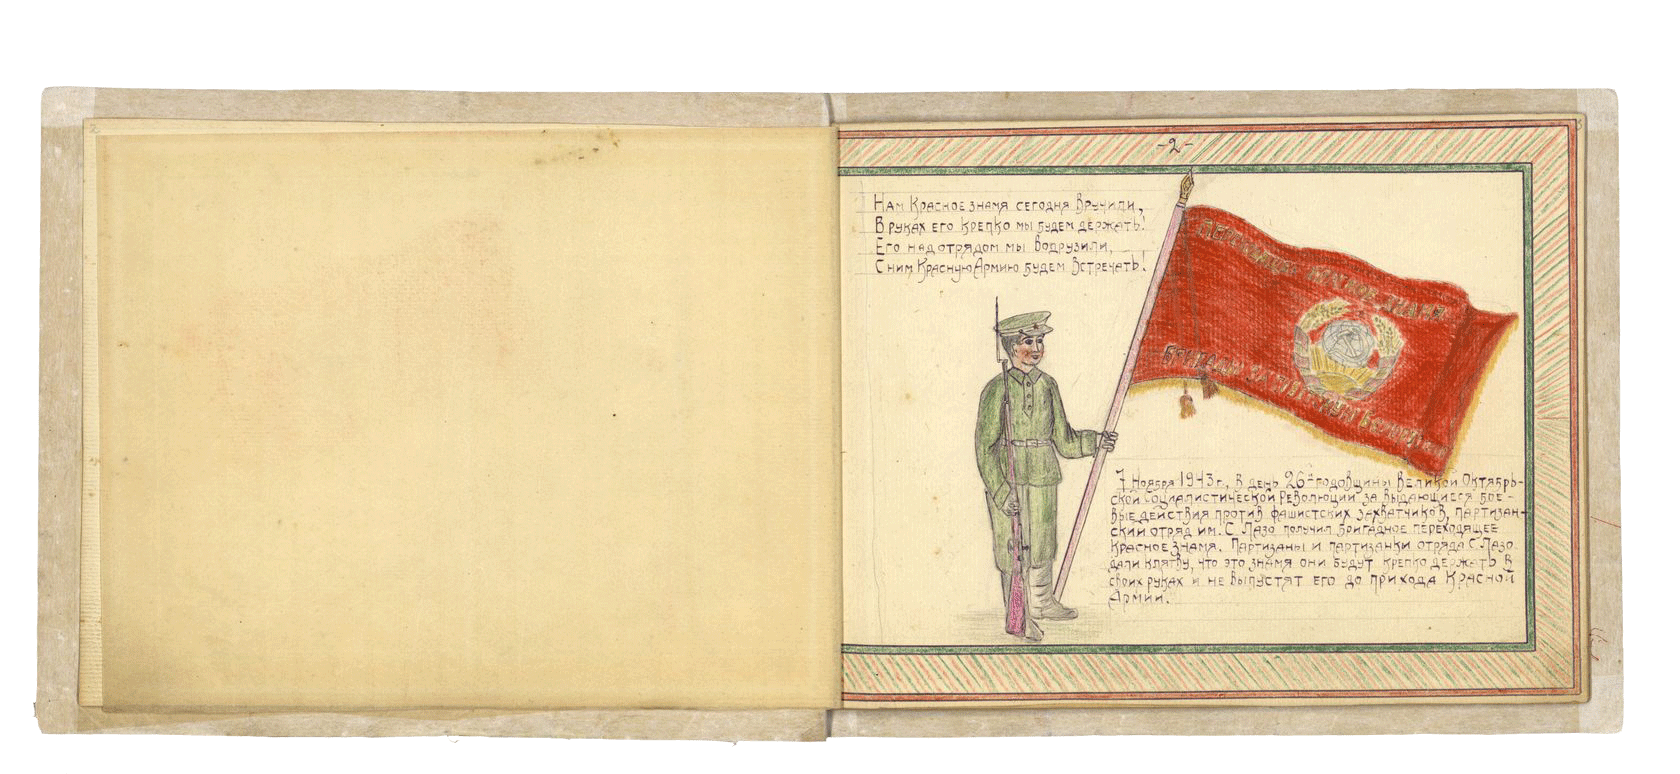 -2-
Нам Красное знамя сегодня вручили,
В руках его крепко мы будем держать!
Его над отрядом мы водрузили,
С ним Красную Армию будем встречать!
ПЕРЕХОДЯЩЕЕ КРАСНОЕ ЗНАМЯ
БРИГАДЫ ЗА СОВЕТСКУЮ БЕЛОРУССИЮ
7 Ноября 1943 г., в день 26-й годовщины Великой Октябрь-
ской Социалистической Революции за выдающиеся бое-
вые действия против фашистских захватчиков, партизан-
ский отряд им. С Лазо получил бригадное переходящее
Красное Знамя. Партизаны и партизанки отряда С. Лазо
дали клятву, что это знамя они будут крепко держать в
своих руках и не выпустят его до прихода Красной
Армии.